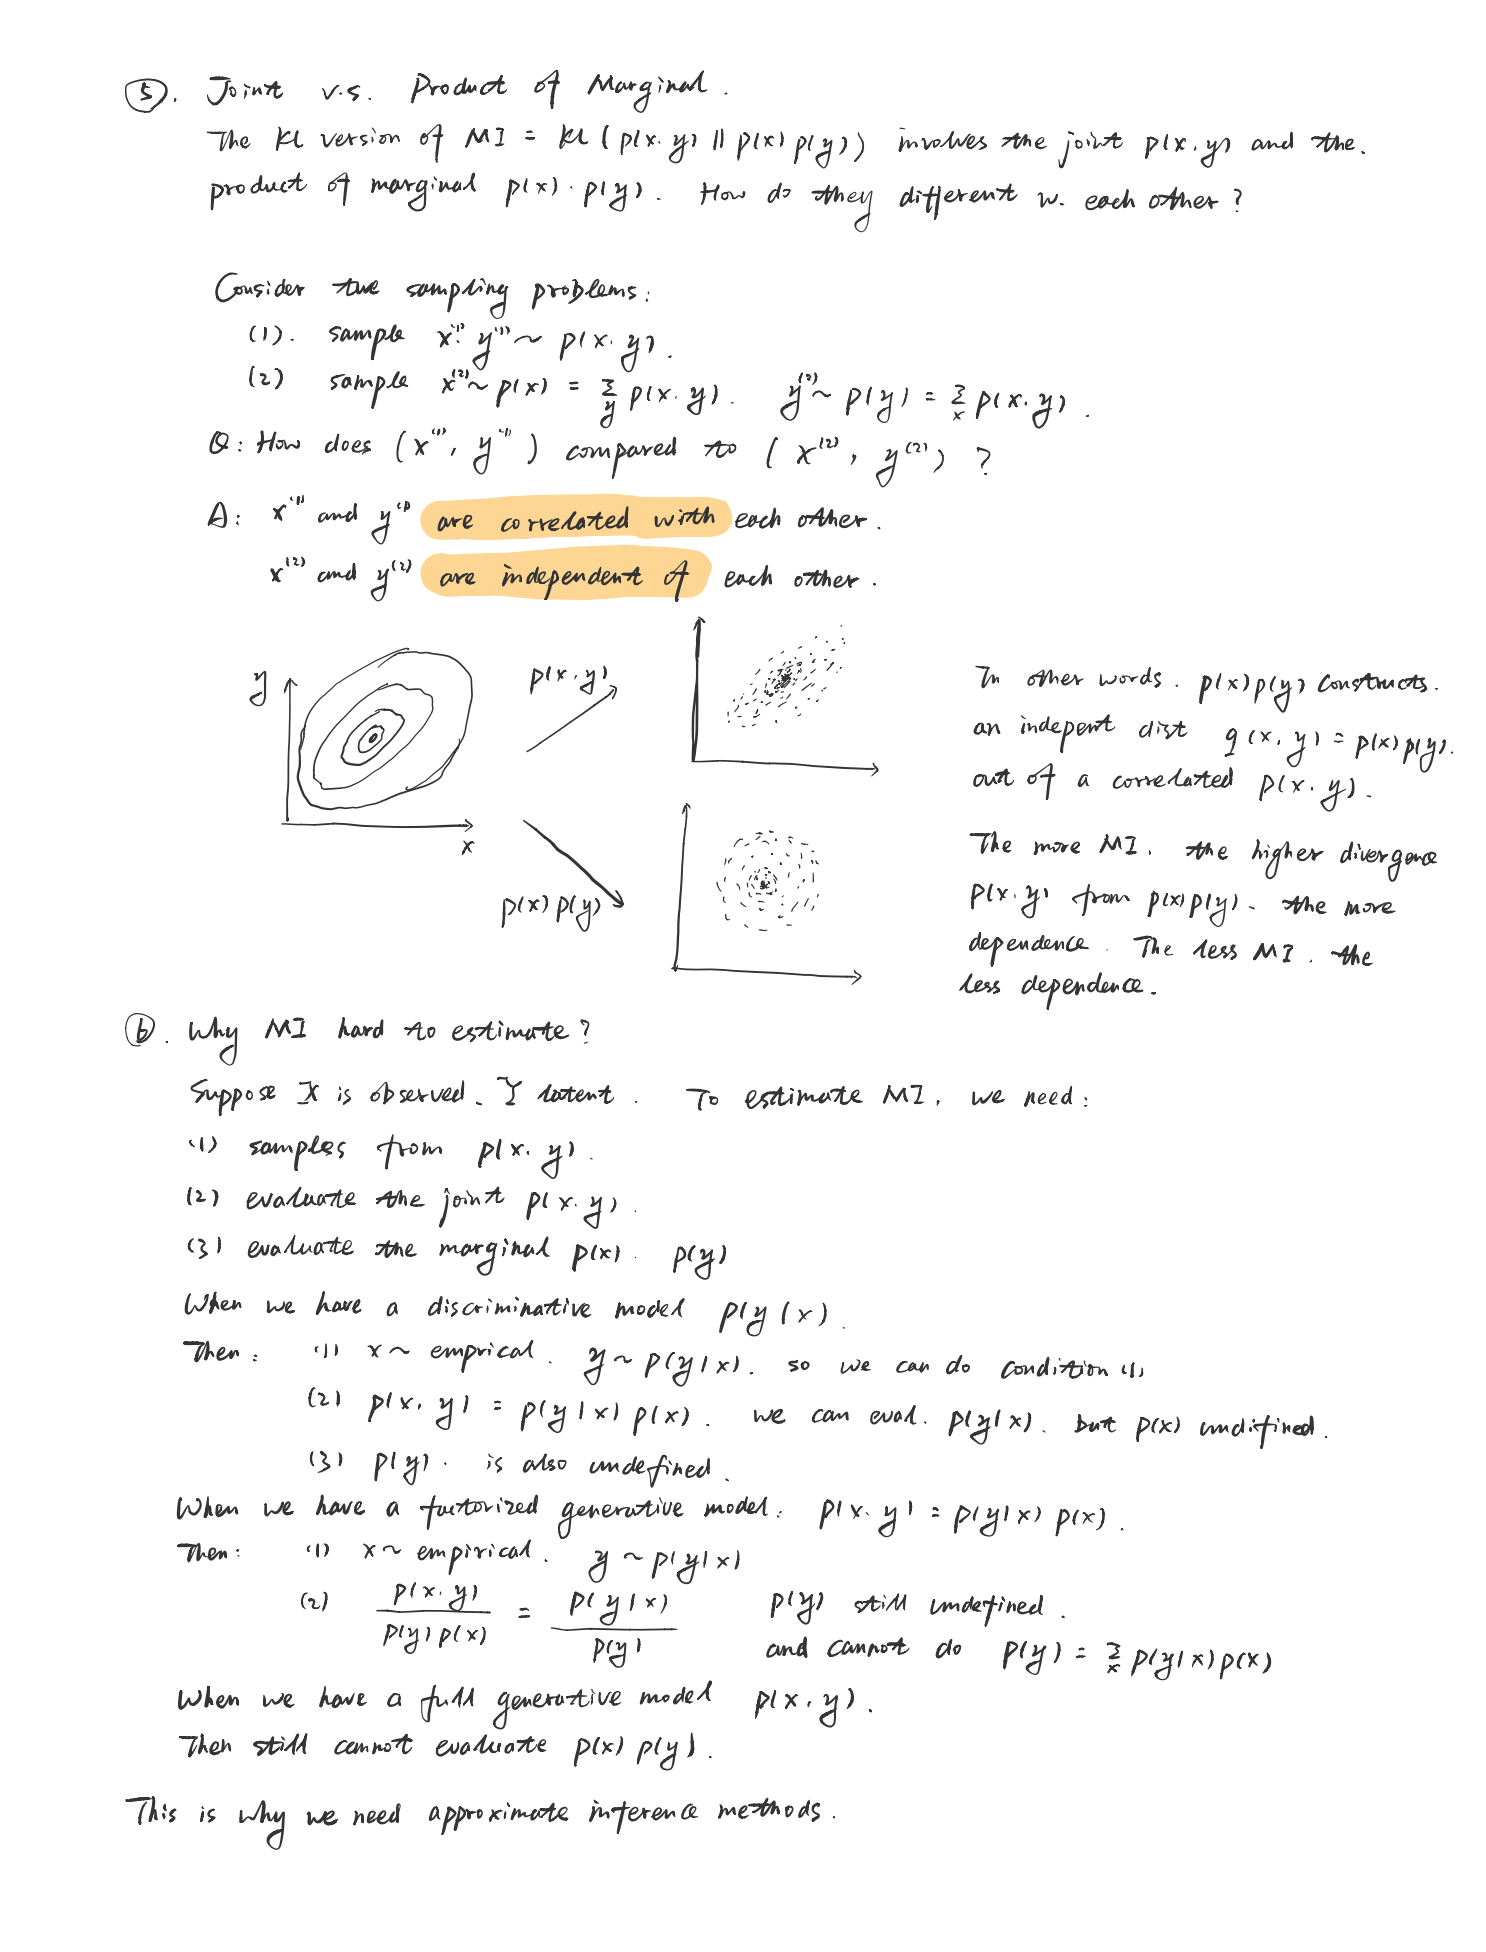 ⑤. Joint v.s. Product of Marginal.
The KL version of MI = KL(p(x.y)||p(x)p(y)) involves the joint p(x.y) and the.
product of marginal p(x).p(y). How do they different w. each other?
Consider two sampling problems:
(1). sample x⁽¹⁾. y⁽¹⁾ ~ p(x.y).
(2) sample x⁽²⁾ ~ p(x) = Σ_y p(x.y). y⁽²⁾ ~ p(y) = Σ_x p(x.y).
Q: How does (x⁽¹⁾, y⁽¹⁾) compared to (x⁽²⁾, y⁽²⁾) ?
A: x⁽¹⁾ and y⁽¹⁾ are correlated with each other.
x⁽²⁾ and y⁽²⁾ are independent of each other.
y
x
p(x.y)
p(x)p(y)
In other words. p(x)p(y) constructs.
an indepent dist q(x,y) = p(x)p(y).
out of a correlated p(x.y).
The more MI. the higher divergence
p(x.y) from p(x)p(y). the more
dependence. The less MI. the
less dependence.
⑥. Why MI hard to estimate?
Suppose X is observed. Y latent. To estimate MI, we need:
(1) samples from p(x.y).
(2) evaluate the joint p(x.y).
(3) evaluate the marginal p(x). p(y)
When we have a discriminative model p(y|x).
Then: (1) x ~ emprical. y ~ p(y|x). so we can do condition (1)
(2) p(x.y) = p(y|x)p(x). we can eval. p(y|x). but p(x) undifined.
(3) p(y). is also undefined.
When we have a factorized generative model: p(x.y) = p(y|x)p(x).
Then: (1) x ~ empirical. y ~ p(y|x)
(2) p(x.y) / p(y)p(x) = p(y|x) / p(y) p(y) still undefined.
and cannot do p(y) = Σ_x p(y|x)p(x)
When we have a full generative model p(x,y).
Then still cannot evaluate p(x)p(y).
This is why we need approximate inference methods.